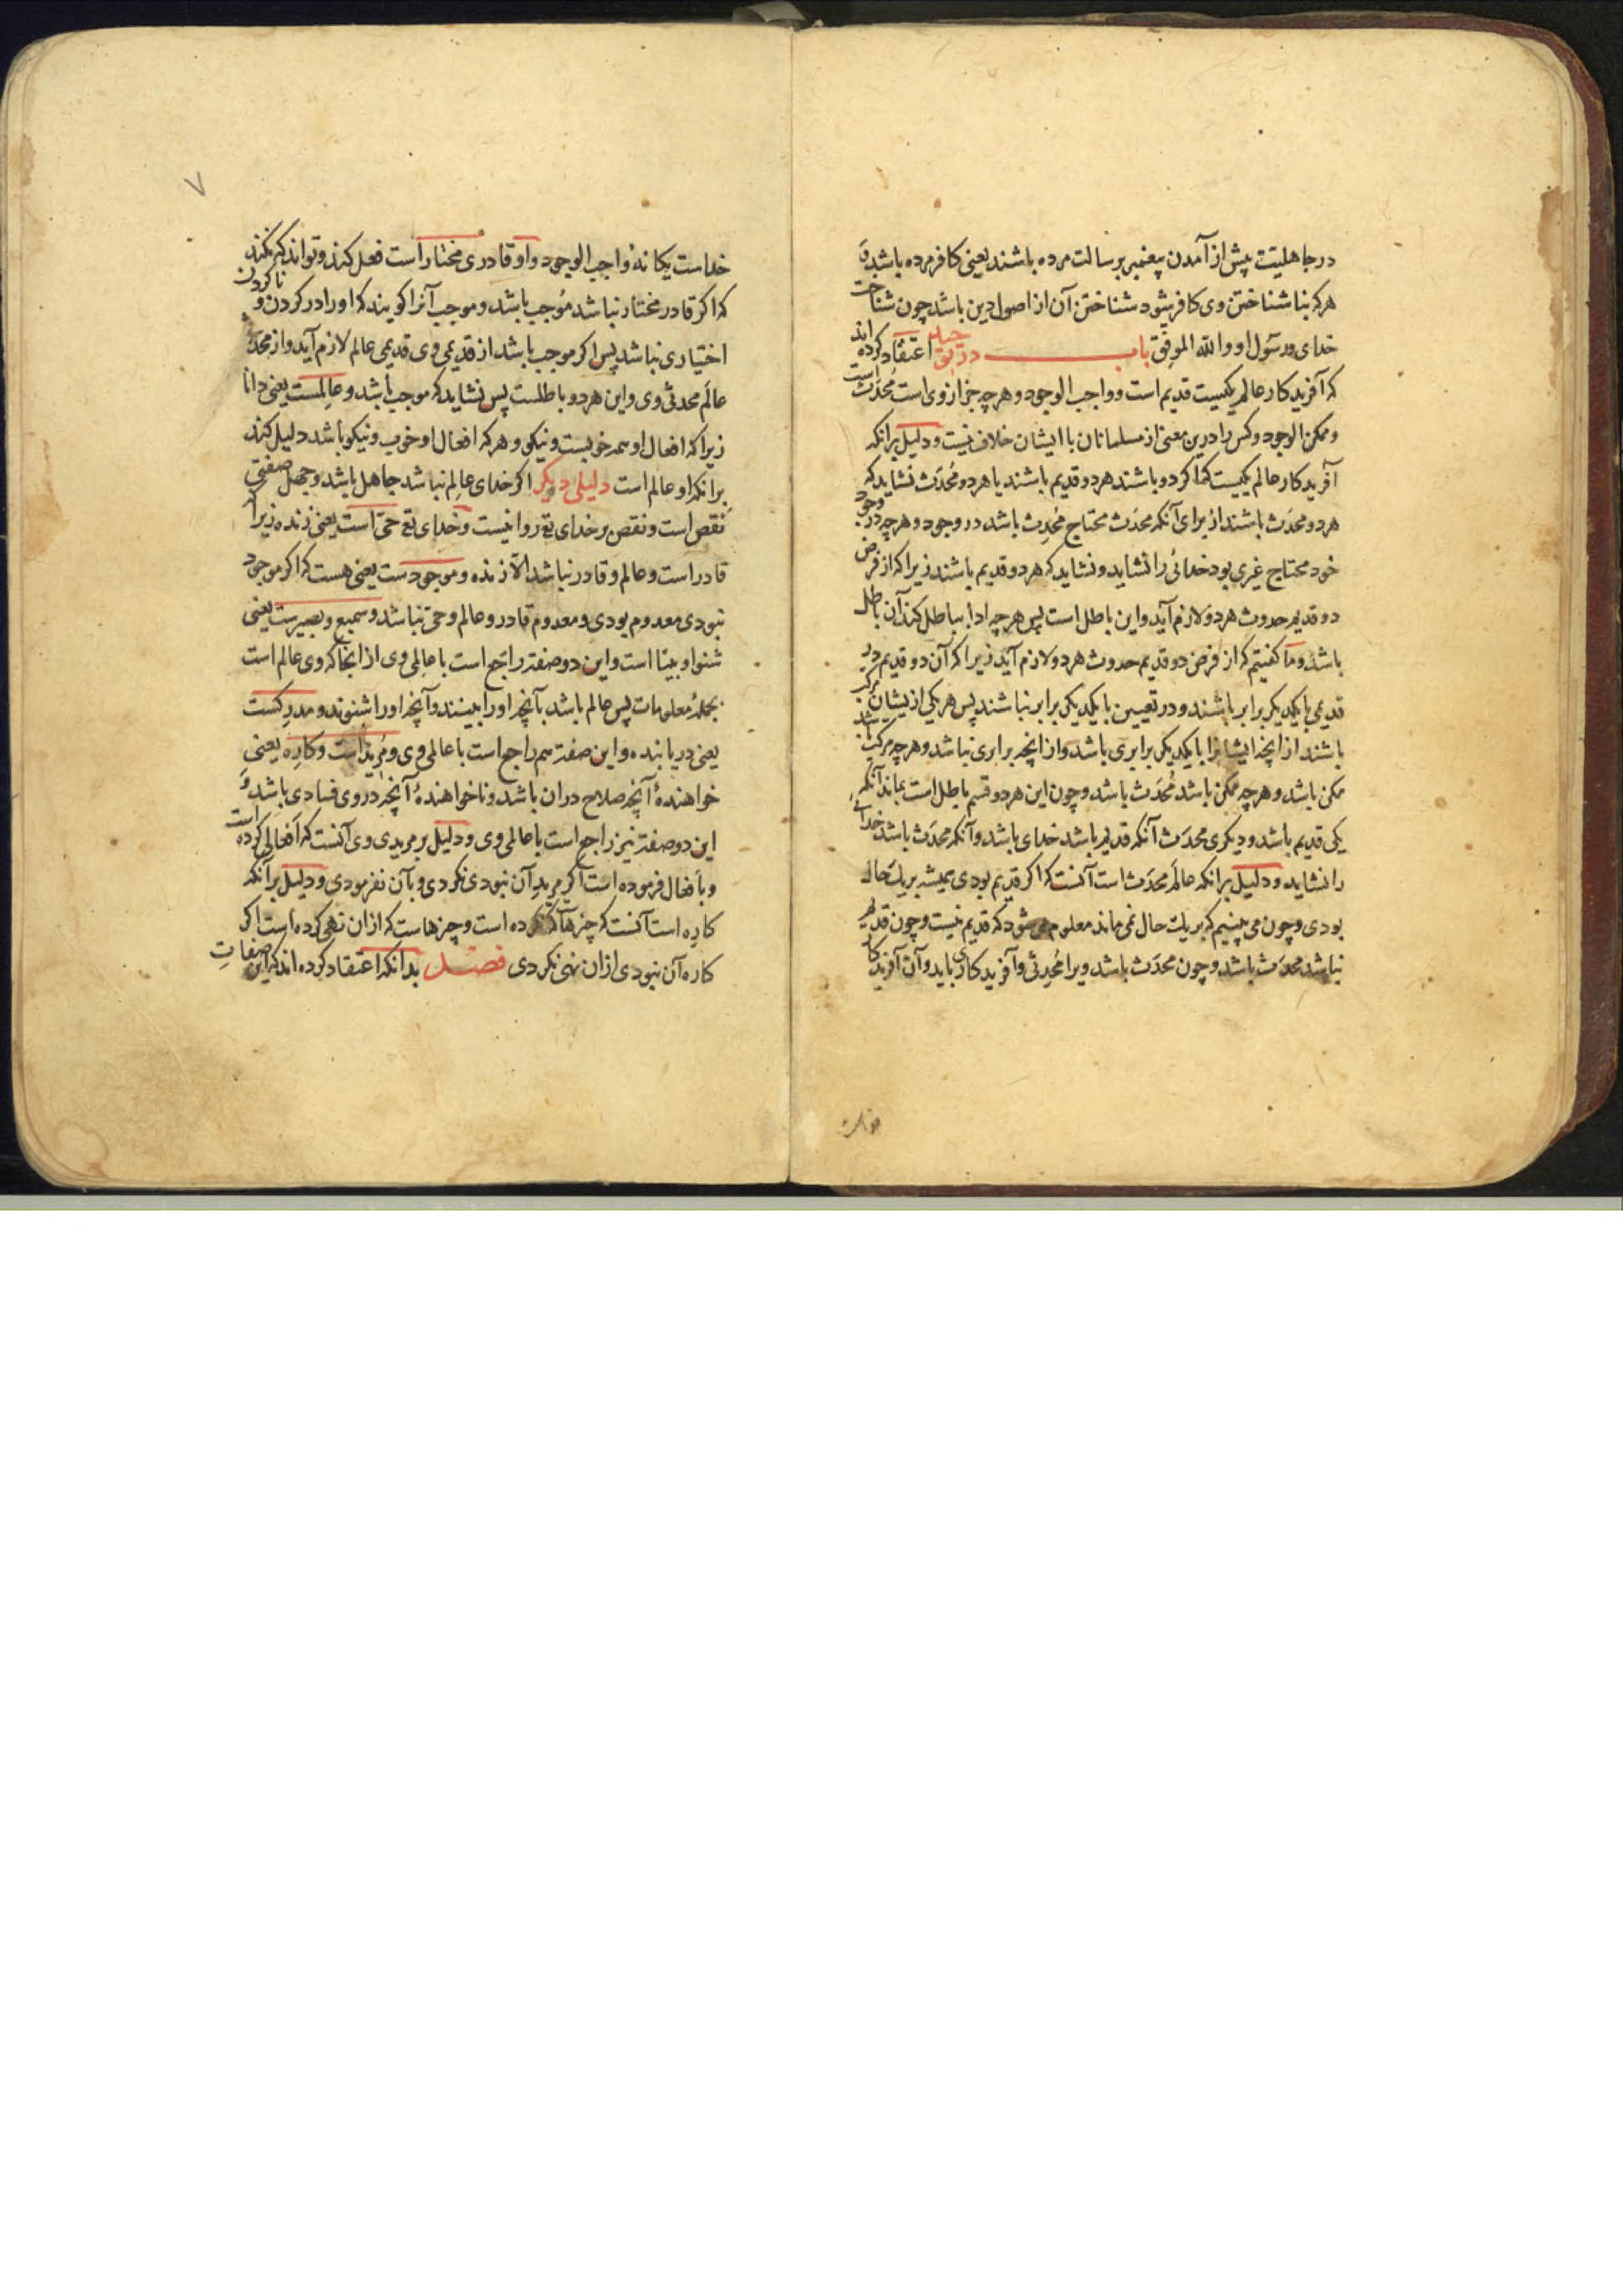 در جاهلیت پیش از آمدن پیغمبر برسالت مرده باشند یعنی کافر مرده باشد و
هرکه بناشناختن وی کافر شود شناختن آن از اصول دین باشد چون شناخت
خدای و رسول او والله الموفق باب در توحید اعتقاد کرده اند
که آفریدکار عالم یکیست قدیم است و واجب الوجود و هرچه جز از وی است محدث است
و ممکن الوجود و کس را درین معنی از مسلمانان با ایشان خلاف نیست و دلیل برانکه
آفریدکار عالم یکیست که اکر دو باشند هر دو قدیم باشند یا هر دو محدث نشاید که
هر دو محدث باشند از برای آنکه محدث محتاج محدث باشد در وجود و هرچه در وجود
خود محتاج غیری بود خدائی را نشاید و نشاید که هر دو قدیم باشند زیرا که از فرض
دو قدیم حدوث هر دو لازم آید و این باطل است پس هرچه ادا بباطل کند آن باطل
باشد و ما کفتیم که از فرض دو قدیم حدوث هر دو لازم آید زیرا که آن دو قدیم در
قدیمی با یکدیکر برابر باشند و در تعیین با یکدیکر برابر نباشند پس هر یکی ازیشان مرکب
باشند از آنچه ایشانرا با یکدیکر برابری باشد و از آنچه برابری نباشد و هرچه مرکب باشد
ممکن باشد و هرچه ممکن باشد محدث باشد و چون این هر دو قسم باطل است بماند آنکه
یکی قدیم باشد و دیکری محدث آنکه قدیم باشد خدای باشد و آنکه محدث باشد خدائی
را نشاید و دلیل برانکه عالم محدث است آنست که اکر قدیم بودی همیشه بریک حال
بودی و چون می بینیم که بریک حال نمی ماند معلوم می شود که قدیم نیست و چون قدیم
نباشد محدث باشد و چون محدث باشد ویرا محدثی و آفریدکاری باید و آن آفریدکار
۷
خداست یکانه و واجب الوجود و او قادری مختار است فعل کند و تواند که نکند
که اکر قادر مختار نباشد موجب باشد و موجب آنرا کویند که اورا در کردن و ناکردن
اختیاری نباشد پس اکر موجب باشد از قدیمی وی قدیمی عالم لازم آید و از محدثی
عالم محدثی وی و این هر دو باطلست پس نشاید که موجب باشد و عالمست یعنی دانا
زیرا که افعال او همه خوبست و نیکو و هرکه افعال او خوب و نیکو باشد دلیل کند
برانکه او عالم است دلیلی دیکر اکر خدای عالم نباشد جاهل باشد و جهل صفتی
نقص است و نقص بر خدای تع روا نیست و خدای تع حی است یعنی زنده زیرا که
قادر است و عالم و قادر نباشد الا زنده و موجودست یعنی هست که اکر موجود
نبودی معدوم بودی و معدوم قادر و عالم و حی نباشد و سمیع و بصیرست یعنی
شنوا و بینا است و این دو صفت راجع است با عالمی وی از آنجا که وی عالم است
بجمله معلومات پس عالم باشد بآنچه اورا بینند و آنچه اورا شنوند و مدرکست
یعنی دریابنده و این صفت هم راجع است با عالمی وی و مرید است و کاره یعنی
خواهنده آنچه صلاح دران باشد و ناخواهنده آنچه در وی فسادی باشد و
این دو صفت نیز راجع است با عالمی وی و دلیل بر مریدی وی آنست که افعالی کرده است
و بافعال فرموده است اکر مرید آن نبودی نکردی و بآن نفرمودی و دلیل برآنکه
کاره است آنست که چیزها که نکرده است و چیزهاست که ازان نهی کرده است اکر
کاره آن نبودی ازان نهی نکردی فصل بدانکه اعتقاد کرده اند که این صفات